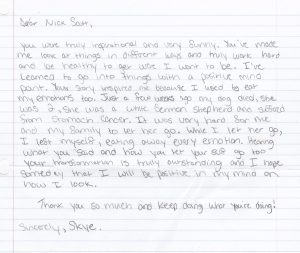 Dear Nick Scott,
you were truly inspirational and very funny. You've made
me look at things in different ways and truly work hard
and be healthy to get where I want to be. I've
learned to go into things with a positive mind
point. Your story inspired me because I used to eat
my emotions too. Just a few weeks ago my dog died, she
was a white German Shepherd and suffered
from stomach cancer. It was very hard for me
and my family to let her go. While I let her go,
I lost myself, eating away every emotion. Hearing
what you said and how you let your self go too
your transformation is truly outstanding and I hope
someday that I will be positive in my mind on
how I look.
Thank you so much and keep doing what you're doing!
Sincerely, Skye.